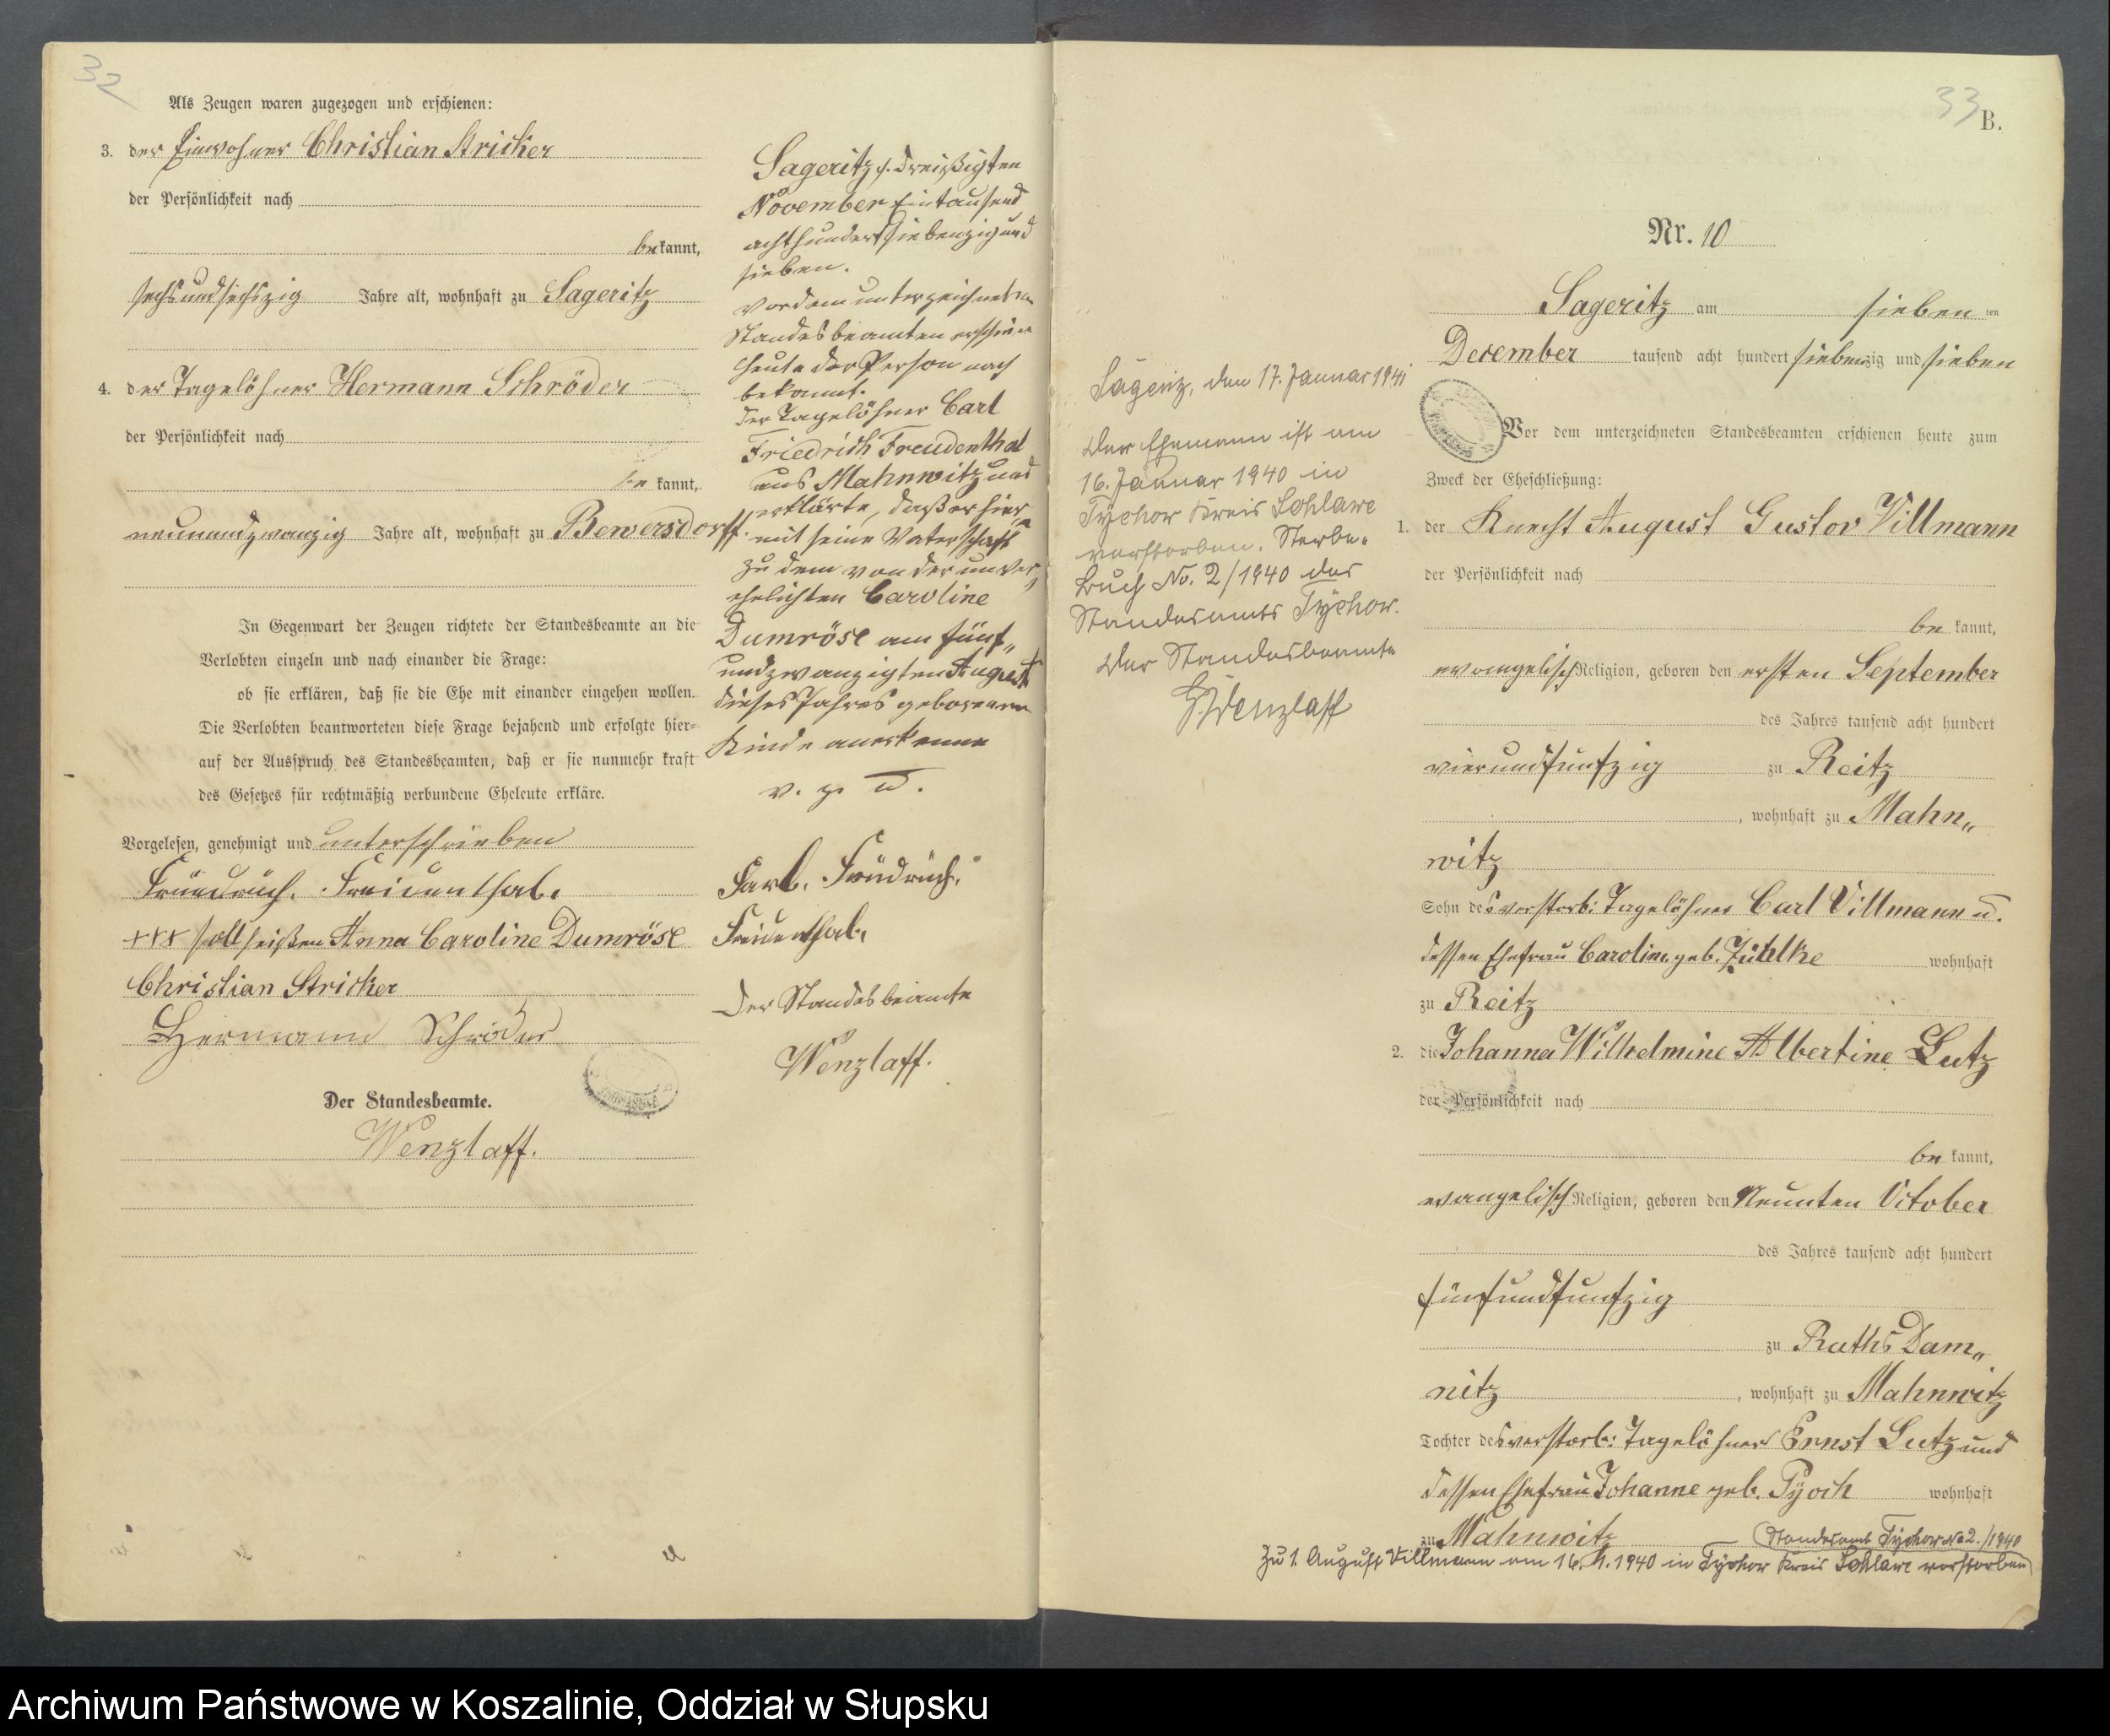 32
Als Zeugen waren zugezogen und erschienen:
3. der Einwohner Christian Stricker
der Persönlichkeit nach
bekannt,
sechsundsechszig Jahre alt, wohnhaft zu Sageritz
4. der Tagelöhner Hermann Schröder
der Persönlichkeit nach
be kannt,
neunundzwanzig Jahre alt, wohnhaft zu Bewersdorff.
In Gegenwart der Zeugen richtete der Standesbeamte an die
Verlobten einzeln und nach einander die Frage:
ob sie erklären, daß sie die Ehe mit einander eingehen wollen.
Die Verlobten beantworteten diese Frage bejahend und erfolgte hier-
auf der Ausspruch des Standesbeamten, daß er sie nunmehr kraft
des Gesetzes für rechtmäßig verbundene Eheleute erkläre.
Vorgelesen, genehmigt und unterschrieben
Friedrich. Freidenthal.
+++ soll heißen Anna Caroline Dumröse
Christian Stricker
Hermann Schröder
Der Standesbeamte.
Wenzlaff.
Sageritz, dreißigten
November Eintausend
achthundert siebenzig und
sieben.
Vor dem unterzeichneten
Standesbeamten erschien
heute der Person nach
bekannt.
der Tagelöhner Carl
Friedrich Freudenthal
aus Mahnwitz und
erklärte, daß er hier„
mit seine Vaterschaft
zu dem von der unver„
ehelichten Caroline
Dumröse am fünf„
undzwanzigten August
dieses Jahres geborenen
Kinde anerkenne
v. g. u.
Carl. Friedrich.
Freidenthal.
Der Standesbeamte
Wenzlaff.
Sageritz, den 17. Januar 1941
Der Ehemann ist am
16. Januar 1940 in
Tychow Kreis Schlawe
verstorben. Sterbe-
buch No. 2/1940 des
Standesamts Tychow.
Der Standesbeamte
Wenzlaff
33
B.
Nr. 10
Sageritz am sieben ten
December tausend acht hundert siebenzig und sieben
Vor dem unterzeichneten Standesbeamten erschienen heute zum
Zweck der Eheschließung:
1. der Knecht August Gustav Villmann
der Persönlichkeit nach
be kannt,
evangelisch Religion, geboren den ersten September
des Jahres tausend acht hundert
vierundfunfzig zu Reitz
, wohnhaft zu Mahn„
witz
Sohn des verstorb: Tagelöhner Carl Villmann u.
dessen Ehefrau Caroline geb. wohnhaft
zu Reitz
2. die Johanna Wilhelmine Albertine Lutz
der Persönlichkeit nach
be kannt,
evangelisch Religion, geboren den Neunten October
des Jahres tausend acht hundert
fünfundfunfzig
zu Raths Dam„
nitz , wohnhaft zu Mahnwitz
Tochter des verstorb: Tagelöhner Ernst Lutz und
dessen Ehefrau Johanne geb. Pyoch wohnhaft
zu Mahnwitz
Standesamt Tychow No 2./1940
Zu 1. August Villmann am 16. 1. 1940 in Tychow Kreis Schlawe verstorben
Archiwum Państwowe w Koszalinie, Oddział w Słupsku